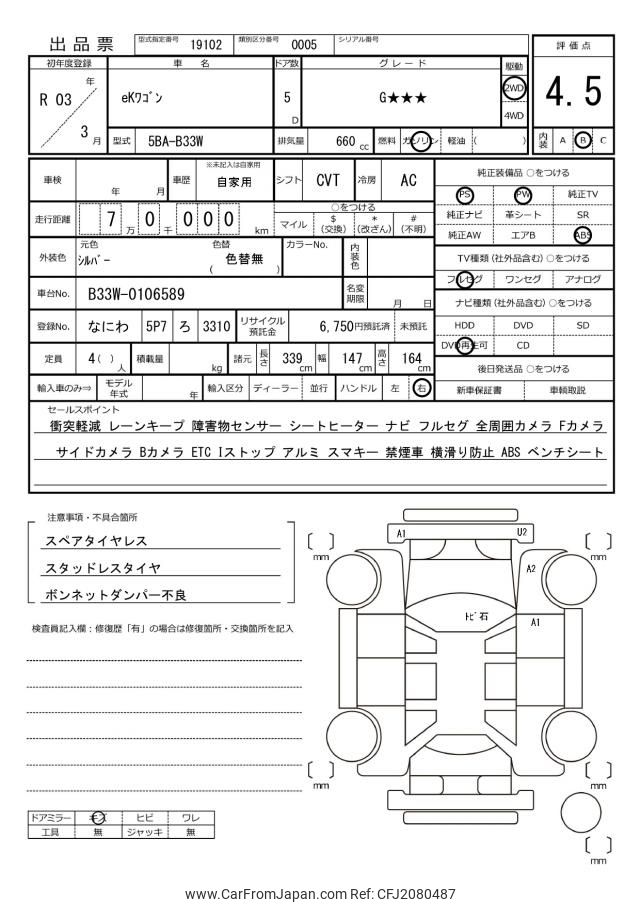 出品票 型式指定番号 19102 類別区分番号 0005 シリアル番号
評価点
4.5
内装 A B C
初年度登録 車名 ドア数 グレード 駆動
R 03 年 3 月 eKワゴン 5 D G★★★ 2WD 4WD
型式 5BA-B33W 排気量 660 cc 燃料 ガソリン 軽油 ( )
車検 年 月 車歴 ※未記入は自家用 自家用 シフト CVT 冷房 AC
走行距離 7 万 0 千 0 0 0 km
○をつける
マイル $ (交換) * (改ざん) # (不明)
外装色 元色 シルバー 色替 ( 色替無 ) カラーNo. 内装色
車台No. B33W-0106589 名変期限 月 日
登録No. なにわ 5P7 ろ 3310 リサイクル預託金 6,750円預託済 未預託
定員 4( ) 人 積載量 kg 諸元 長さ 339 cm 幅 147 cm 高さ 164 cm
輸入車のみ⇒ モデル年式 年 輸入区分 ディーラー 並行 ハンドル 左 右
純正装備品 ○をつける
PS PW 純正TV
純正ナビ 革シート SR
純正AW エアB ABS
TV種類(社外品含む) ○をつける
フルセグ ワンセグ アナログ
ナビ種類(社外品含む) ○をつける
HDD DVD SD
DVD再生可 CD
後日発送品 ○をつける
新車保証書 車輌取説
セールスポイント
衝突軽減 レーンキープ 障害物センサー シートヒーター ナビ フルセグ 全周囲カメラ Fカメラ
サイドカメラ Bカメラ ETC Iストップ アルミ スマキー 禁煙車 横滑り防止 ABS ベンチシート
注意事項・不具合箇所
スペアタイヤレス
スタッドレスタイヤ
ボンネットダンパー不良
検査員記入欄：修復歴「有」の場合は修復箇所・交換箇所を記入
A1 U2
[ ] mm [ ] mm
A2
トビ石
A1
[ ] mm [ ] mm
[ ] mm
ドアミラー キズ ヒビ ワレ
工具 無 ジャッキ 無
www.CarFromJapan.com Ref: CFJ2080487